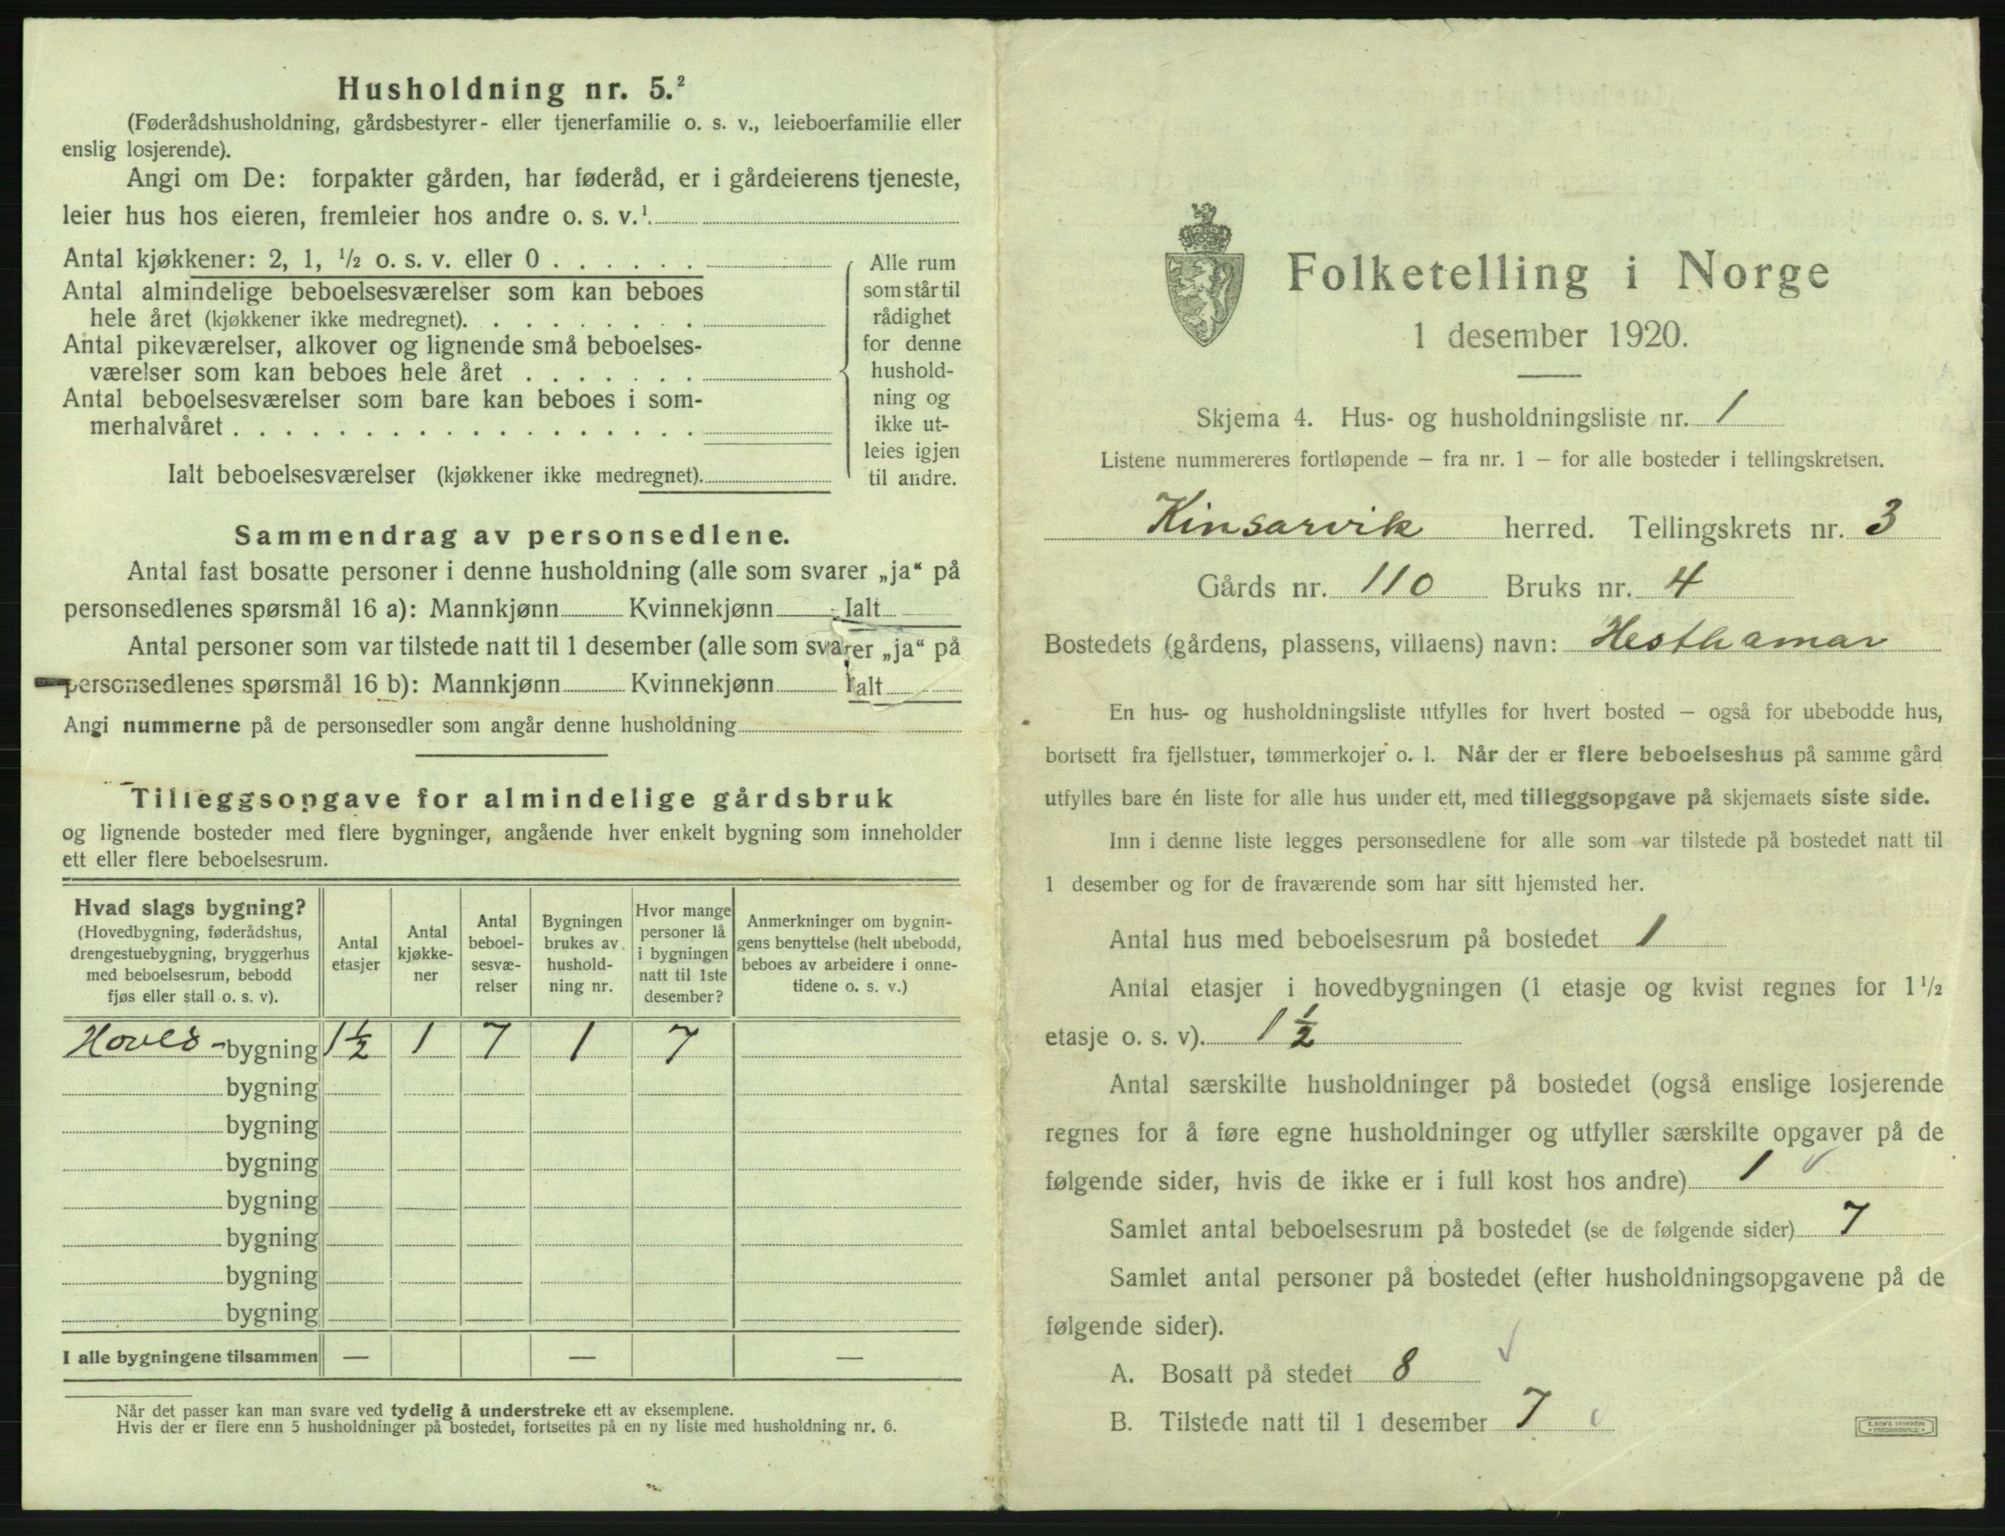 Husholdning nr. 5.²
(Føderådshusholdning, gårdsbestyrer- eller tjenerfamilie o. s. v., leieboerfamilie eller
enslig losjerende).
Angi om De: forpakter gården, har føderåd, er i gårdeierens tjeneste,
leier hus hos eieren, fremleier hos andre o. s. v.¹
Antal kjøkkener: 2, 1, ½ o. s. v. eller 0
Antal almindelige beboelsesværelser som kan beboes
hele året (kjøkkener ikke medregnet).
Antal pikeværelser, alkover og lignende små beboelses-
værelser som kan beboes hele året
Antal beboelsesværelser som bare kan beboes i som-
merhalvåret
Ialt beboelsesværelser (kjøkkener ikke medregnet).
Alle rum
som står til
rådighet
for denne
hushold-
ning og
ikke ut-
leies igjen
til andre.
Sammendrag av personsedlene.
Antal fast bosatte personer i denne husholdning (alle som svarer „ja“ på
personsedlenes spørsmål 16 a): Mannkjønn Kvinnekjønn Ialt
Antal personer som var tilstede natt til 1 desember (alle som svarer „ja“ på
personsedlenes spørsmål 16 b): Mannkjønn Kvinnekjønn Ialt
Angi nummerne på de personsedler som angår denne husholdning
Tilleggsopgave for almindelige gårdsbruk
og lignende bosteder med flere bygninger, angående hver enkelt bygning som inneholder
ett eller flere beboelsesrum.
Hvad slags bygning?
(Hovedbygning, føderådshus,
drengestuebygning, bryggerhus
med beboelsesrum, bebodd
fjøs eller stall o. s. v).
Antal
etasjer
Antal
kjøkke-
ner
Antal
beboel-
sesvæ-
relser
Bygningen
brukes av
hushold-
ning nr.
Hvor mange
personer lå
i bygningen
natt til 1ste
desember?
Anmerkninger om bygnin-
gens benyttelse (helt ubebodd,
beboes av arbeidere i onne-
tidene o. s. v.)
Hoved-bygning 1½ 1 7 1 7
bygning
bygning
bygning
bygning
bygning
bygning
bygning
I alle bygningene tilsammen — — —
Når det passer kan man svare ved tydelig å understreke ett av eksemplene.
Hvis der er flere enn 5 husholdninger på bostedet, fortsettes på en ny liste med husholdning nr. 6.
Folketelling i Norge
1 desember 1920.
Skjema 4. Hus- og husholdningsliste nr. 1
Listene nummereres fortløpende – fra nr. 1 – for alle bosteder i tellingskretsen.
Kinsarvik herred. Tellingskrets nr. 3
Gårds nr. 110 Bruks nr. 4
Bostedets (gårdens, plassens, villaens) navn: Hesthamar
En hus- og husholdningsliste utfylles for hvert bosted – også for ubebodde hus,
bortsett fra fjellstuer, tømmerkojer o. l. Når der er flere beboelseshus på samme gård
utfylles bare én liste for alle hus under ett, med tilleggsopgave på skjemaets siste side.
Inn i denne liste legges personsedlene for alle som var tilstede på bostedet natt til
1 desember og for de fraværende som har sitt hjemsted her.
Antal hus med beboelsesrum på bostedet 1
Antal etasjer i hovedbygningen (1 etasje og kvist regnes for 1½
etasje o. s. v). 1½
Antal særskilte husholdninger på bostedet (også enslige losjerende
regnes for å føre egne husholdninger og utfyller særskilte opgaver på de
følgende sider, hvis de ikke er i full kost hos andre) 1
Samlet antal beboelsesrum på bostedet (se de følgende sider) 7
Samlet antal personer på bostedet (efter husholdningsopgavene på de
følgende sider).
A. Bosatt på stedet 8
B. Tilstede natt til 1 desember 7